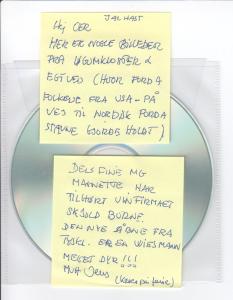 JALHAST
Hej CER
HER ER NOGLE BILLEDER
FRA LØGUMKLOSTER &
EGTVED (HVOR FORDA
FOLKENE FRA USA - PÅ
VEJ TIL NORDISK FORDA
STÆVNE GJORDE HOLDT)
DELS FINE MG
MANNETTE HAR
TILHØRT VINFIRMAET
SKJOLD BURNE.
DEN NYE ÅBNE FRA
TYSKL. ER EN WIESMANN
MEGET DYR !!!
MVH